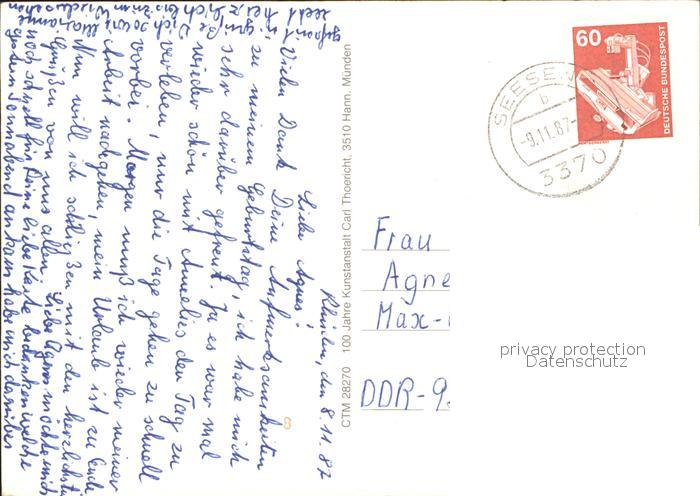 Rhüden, den 8.11.87
Liebe Agnes!
Vielen Dank für Deine Aufmerksamkeiten
zu meinem Geburtstag, ich habe mich
sehr darüber gefreut. Ja es war mal
wieder schön mit Annelies den Tag zu
verleben, nur die Tage gehen zu schnell
vorbei. Morgen muß ich wieder meiner
Arbeit nachgehen, mein Urlaub ist zu Ende
Nun will ich schließen mit den herzlichsten
Grüßen von uns allen. Liebe Agnes möchte mich
noch schnell für Deine liebe Karte bedanken welche
gestern Sonnabend ankam habe mich darüber
gefreut
recht
CTM 28270 100 Jahre Kunstanstalt Carl Thoericht, 3510 Hann. Münden
60
DEUTSCHE BUNDESPOST
SEESEN
b
-9.11.87-
3370
Frau
Agne
Max-
DDR-9
privacy protection
Datenschutz
8